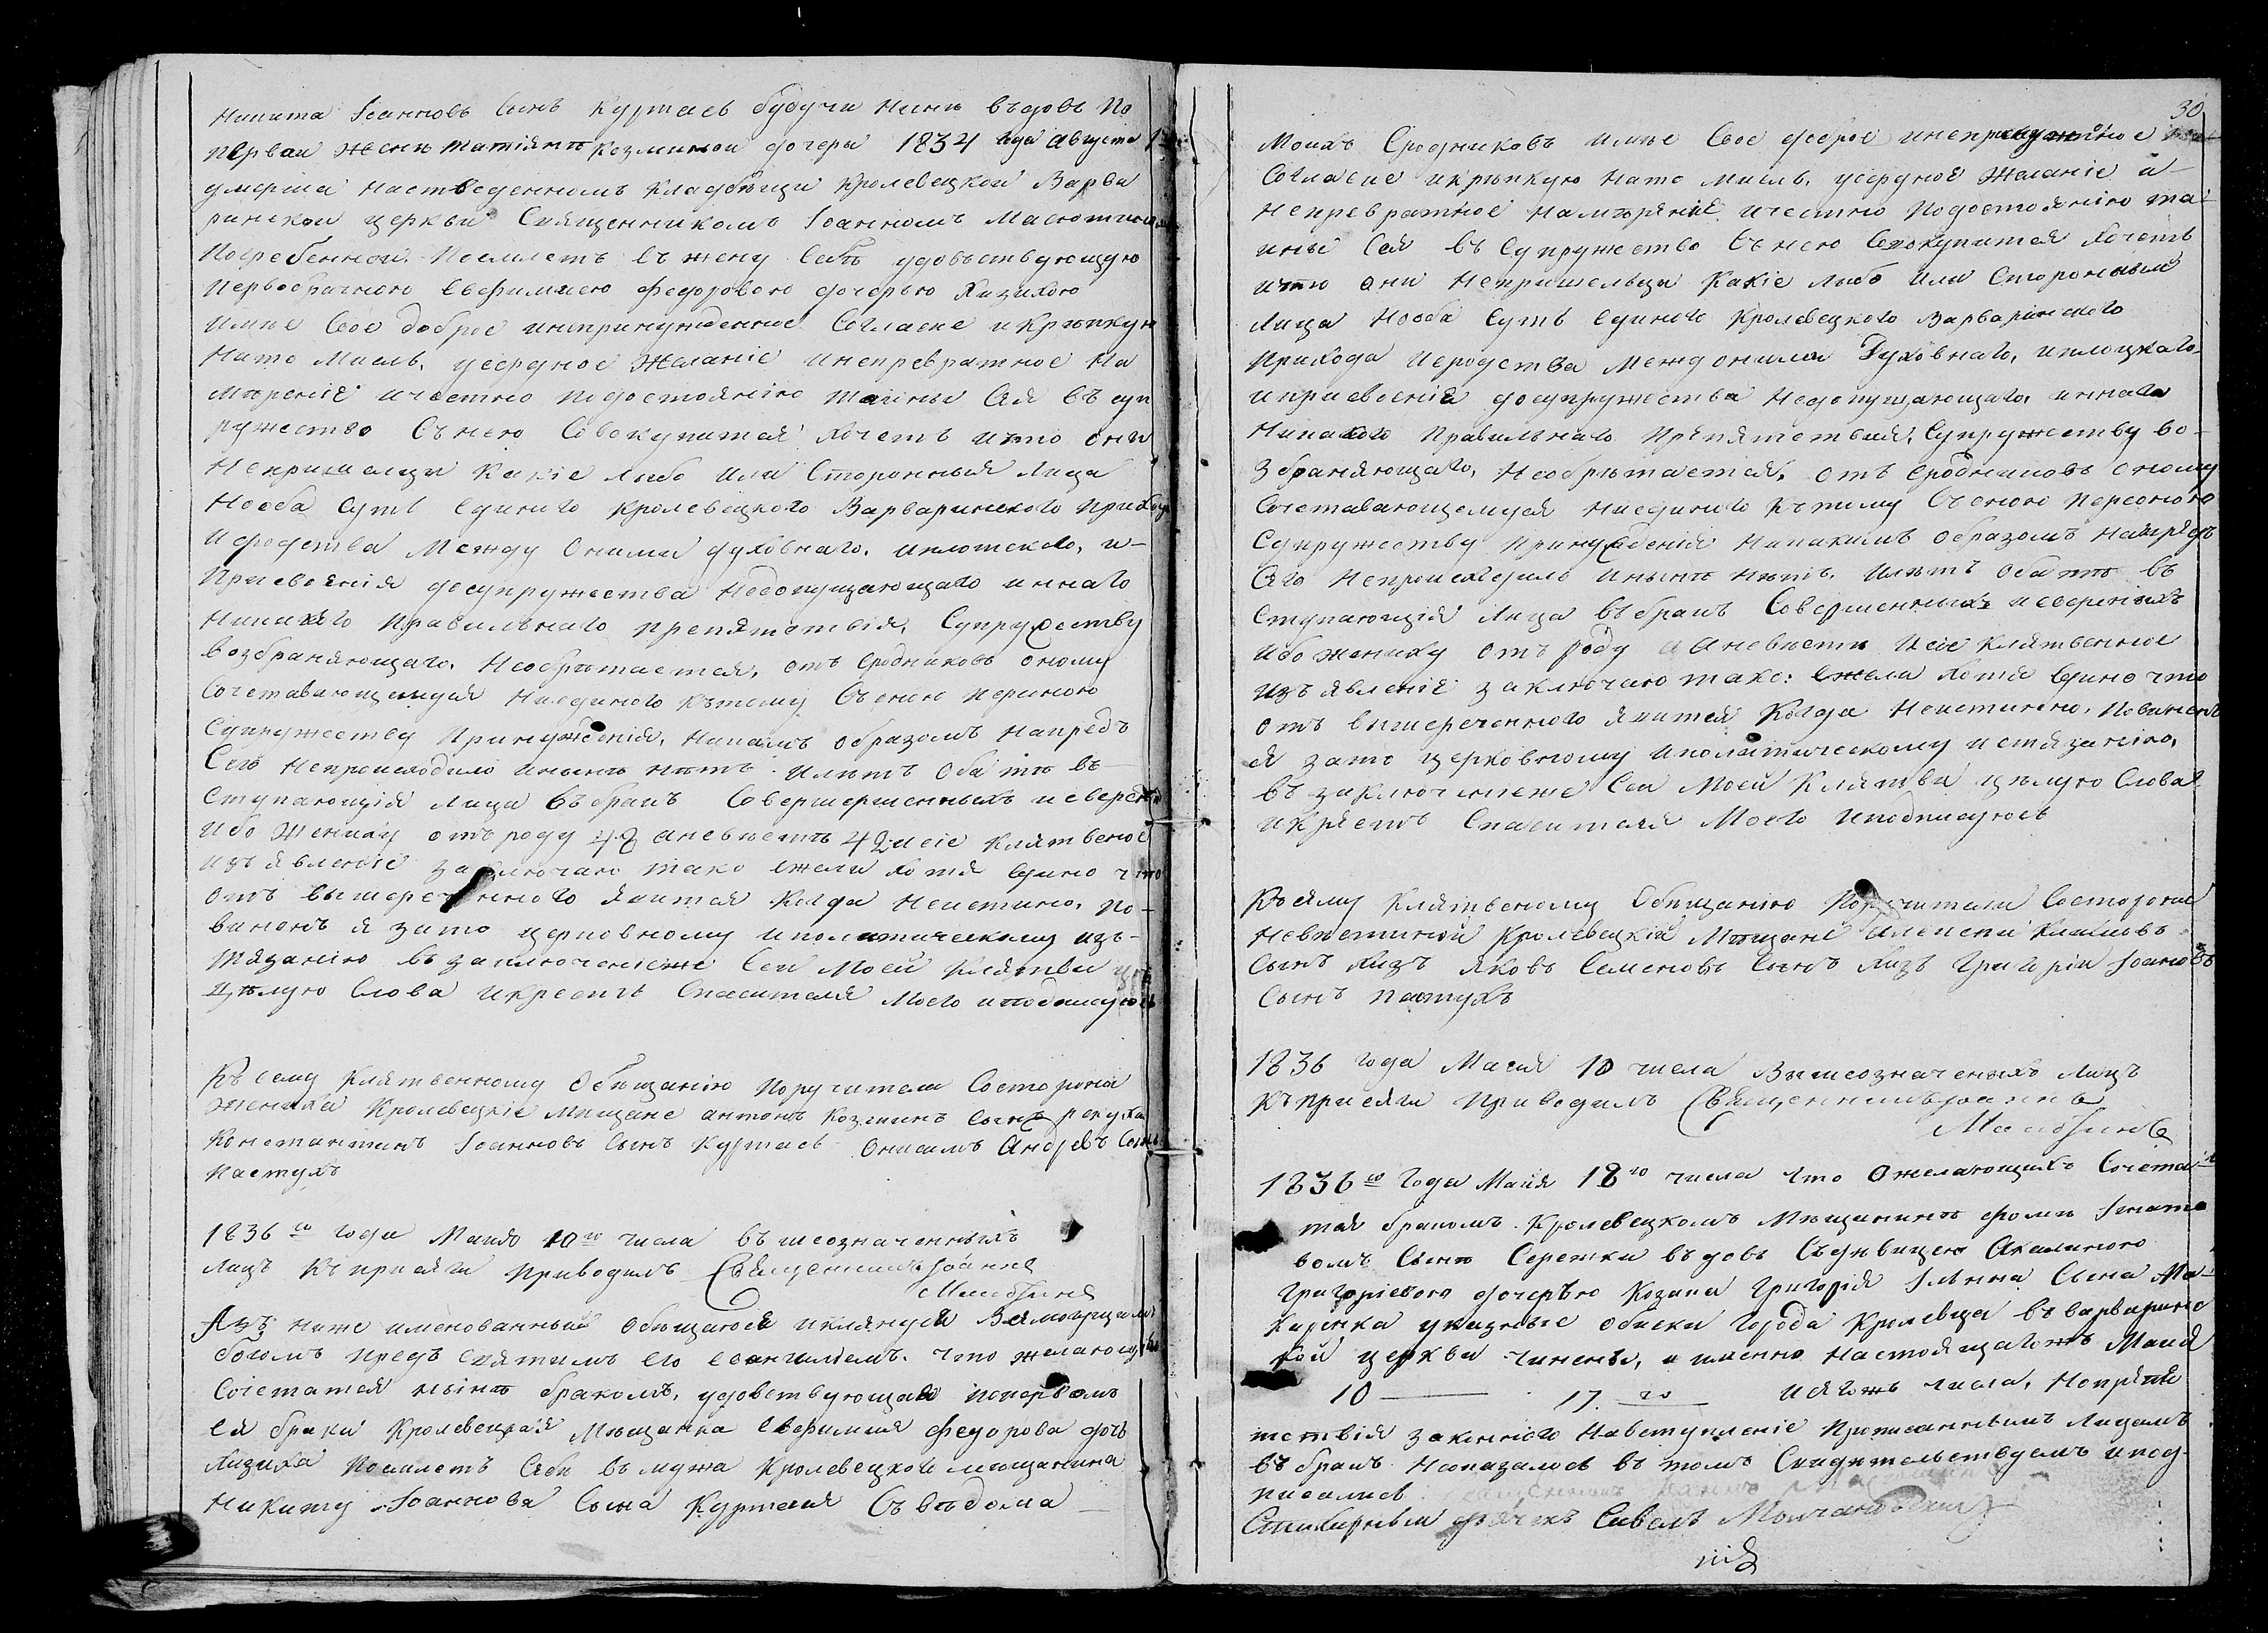 Никита Іоанновъ Сынъ Куртаевъ будучи нинѣ въдовъ По
Первай женѣ татіянѣ Козминой дочери 1834 года августа
умерша настведенномъ кладбищи Кролевецкой Варва
ринской церкви Священникомъ Іоанномъ
Погребенной. Поемлетъ въ жену себѣ удовъствующую
Первобрачною Евфимиею Федоровою дочерью Хизихою
имѣе Свое доброе инепринужденное Согласие икрѣпкую
Нато мисль, усердное Желаніе инепревратное На
мѣреніе ичестно подостоянію тайны Ся въ суп
ружество Съ нею Совокупитися хочетъ ичто они
Непришелци Какіе либо или Сторонныя Лица
Нооба Суть Единого Кролевецкого Варваринского прихо
Исродства Между Оними духовнаго, иплотскаго, и-
Присвоянія досупружества Недопущающаго иннаго
Никакого Правильнаго препятствія, Супружеству
возбраняющаго, Необрѣтается, отъ Сродниковъ оному
Сочетавающемуся Ниединого Кътому Съ оною персоною
Супружеству Принуждения, Никаимъ образомъ Напредъ
Сего Непроисходило инынѣ нѣтъ. Илѣтъ Оба тѣ въ-
ступающія лица въбракъ Совершершенныхъ исверсны
ибо Жениху отъроду 42 аневѣстѣ 42 исіе Клятвеное
изъявленіе заключаю тако ежели хотя Едино что
отъ вышереченного явится Когда Неистино, По-
виненъ я зато церковному иполитическому изъ-
тязанію въ заключеніеже Сей Моей клятви
цѣлую Слова икрестъ Спасителя Моего иподписуюсь
Къ сему Клятвенному Обѣщанію поручители Состороны
Жениха Кролевецкіе мѣщане антонъ Козминъ Сынъ
Константинъ Іоанновъ Сынъ Куртаевъ Онисимъ Андрѣевъ Сынъ
Пастухъ
1836 го года Маия 10 го числа въшеозначенныхъ
лицъ Къ присяги приводилъ Священникъ Іоаннъ
Азъ ниже именованный обѣщаюся иклянуся Всемогущимъ
богомъ предъ святимъ его евангилиемъ. что желающу
Сочетатся нынѣ бракомъ, удовствующая поперьвомъ
ея браки Кролевецкая Мѣщанка Евфимия Федорова дочь
Хизиха Поемлетъ Себи въ мужа Кролевецкого мѣщанина
Никиту Іоаннова Сына Куртаея Съ вѣдома
30
Моихъ Сродниковъ имѣе Свое доброе инепринужденое
Согласие икрѣпкую Нато Мисль, усердное Желаніе и-
непревратное Намѣряніе ичестно Подостоянію та
ины Ся въ Супружество Съ нею Совокупится хочетъ
ичто они Непришельцы Какіе либо или Сторонныи
Лица Нооба Суть Единого Кролевецкого Варваринского
Прихода Исродства Между оними Духовнаго, иплоцкаго-
иприсвоенія досупружества Недопущающаго, иннаго
Никакого Правильнаго Препятствия, Супружеству во-
збраняющаго, Необрѣтается, отъ Сродниковъ оному
Сочетавающемуся Ниединого Кътому Съ оною Персоною
Супружеству Принуждения Никакимъ образомъ Напредъ
Сего Непроисходило Инынѣ нѣтъ. Илѣтъ Оба тѣ въ
ступающія Лица въбракъ Совершенныхъ исверсныхъ
ибо жениху отъ роду аневѣсти Исіе Клятвенное
изъявленіе заключаю тако: ежели хотя Едино что
отъ вышереченного явится Когда Неистинно, Повиненъ
я зато церковному иполитическому истязанію,
въ заключениеже Сей Моей Клятви цѣлую Слова
икрестъ Спасителя Моего иподписуюсь
Къ сему Клятвеному Обѣщанію Поручители Состороны
Невѣстиной Кролевецкіи Мѣщане Алексѣй Климовъ
Сынъ Хизъ Яковъ Семеновъ Сынъ Хизъ Григорій Іоановъ
Сынъ Пастухъ
1836 года Маия 10 числа Вышеозначеныхъ Лицъ
Къ присяги приводилъ Священникъ Іоаннъ
1836 го Года Маия 18 го числа Что Ожелающихъ Сочета
тся бракомъ Кролевецкомъ Мѣщанинѣ Фомѣ Игнато
вомъ Сынѣ Сережки въдовѣ Съдѣвицею Акилиною
Григоріевою дочерѣю Козака Григорія Ильина Сына Ма-
каренка указные обыски Города Кролевца въварварин
кой церкви чинены, а именно Настоящагожъ Маия
10 17. го Исягожъ числа, Нопрепя
тствія законного Навступленіе Прописаннымъ Лицамъ
въбракъ Неоказалось въ томъ Свидѣтельствуемъ ипод-
писались
Стихарный дьячекъ Савелъ